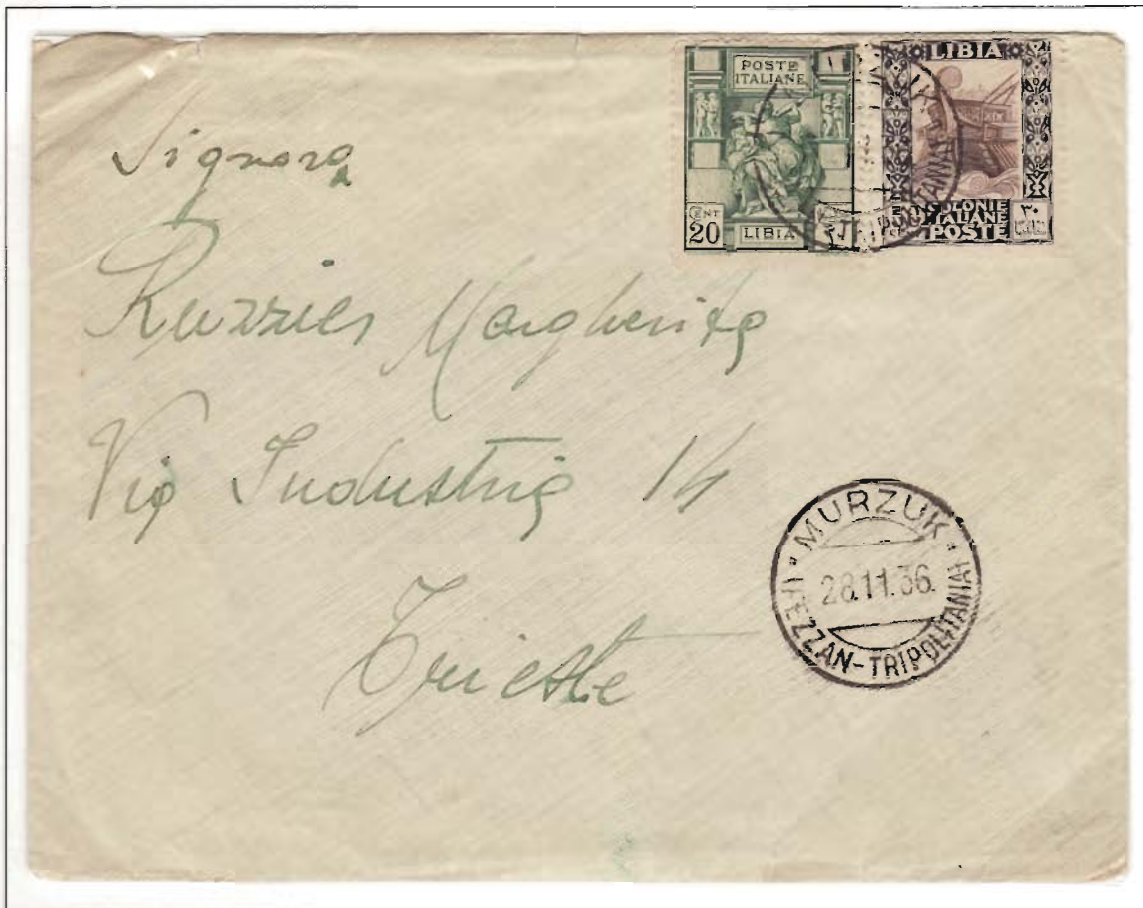 POSTE
ITALIANE
CENT
20
LIBIA
LIBIA
COLONIE
ITALIANE
POSTE
٣٠
Signora
Ruzzier Margherita
Via Industria 14
Trieste
MURZUK
28.11.36.
(FEZZAN-TRIPOLITANIA)